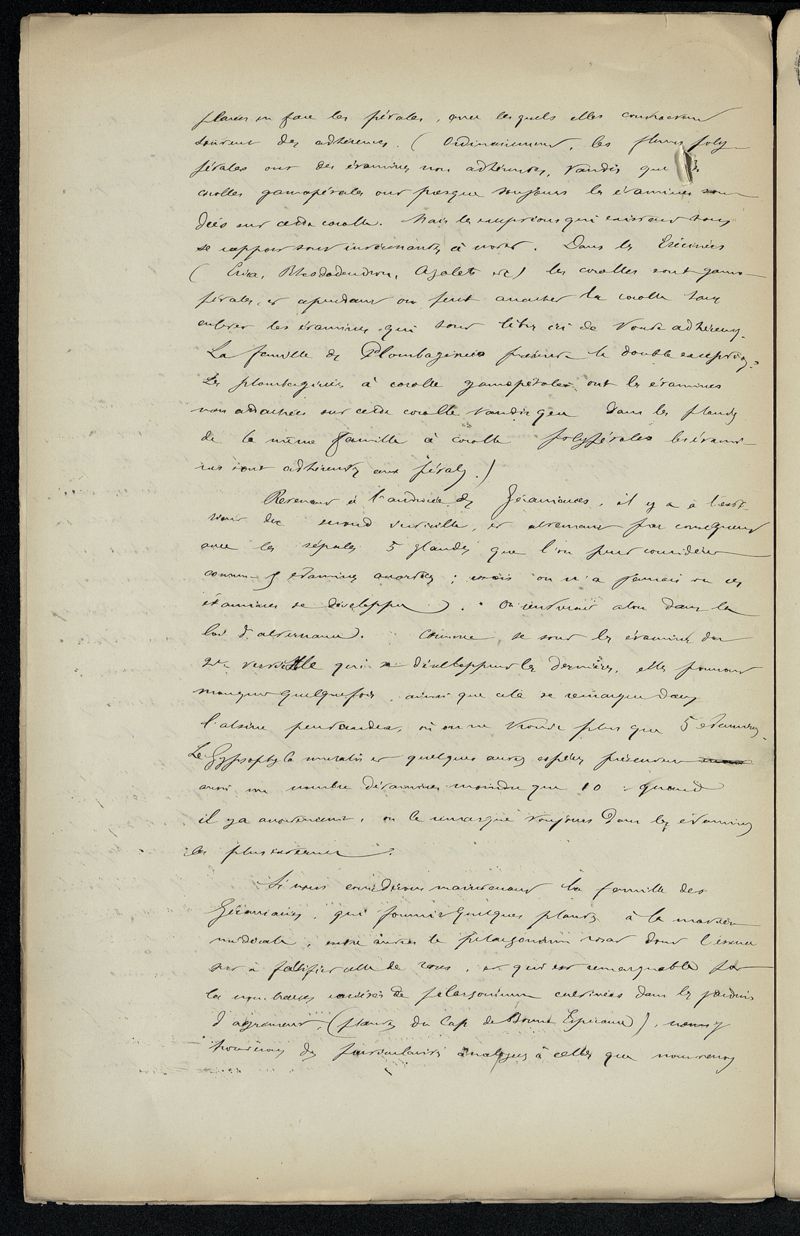 placées en face les pétales, avec lesquels elles contractent
souvent des adhérences. (Ordinairement, les fleurs poly-
pétales ont des étamines non adhérentes, tandis que les
corolles gamopétales ont presque toujours les étamines sou-
dées sur cette corolle. Mais les exceptions qui existent sous
ce rapport sont intéressantes à noter. Dans les Ericinées
(Erica, Rhododendron, Azalea etc) les corolles sont gamo-
pétales, et cependant on peut arracher la corolle sans
enlever les étamines qui sont libres ici de toute adhérence.
La famille des Plombaginées présente la double exception.
Les plombaginées à corolle gamopétales ont les étamines
non attachées sur cette corolle tandis que dans les plantes
de la même famille à corolle polypétales les étami-
nes sont adhérentes aux pétales.)
Revenant à l'androcée des Géraniacées, il y a à l'exté-
rieur du second verticille, et alternant par conséquent
avec les sépales 5 glandes que l'on peut considérer
comme 5 étamines avortées ; mais on n'a jamais vu ces
étamines se développer). On rentrerait alors dans la
loi d'alternance. Comme, ce sont les étamines du
2e verticille qui se développent les dernières, elles peuvent
manquer quelquefois, ainsi que cela se remarque dans
l'alsine pentandra, où on ne trouve plus que 5 étamines.
Le Gypsophyla muralis et quelques autres espèces présentent
aussi un nombre d'étamines moindre que 10. Quand
il y a avortement, on le remarque toujours dans les étamines
les plus internes.
Si nous considérons maintenant la famille des
Géraniacées, qui fournit quelques plantes à la matière
médicale, entre autres le pelargonium rosat dont l'essence
sert à falsifier celle de roses, et qui est remarquable par
les nombreuses variétés de pelargonium cultivées dans les jardins
d'agrément, (plantes du Cap de Bonne Espérance), nous y
trouverons des particularités analogues à celles que nous venons